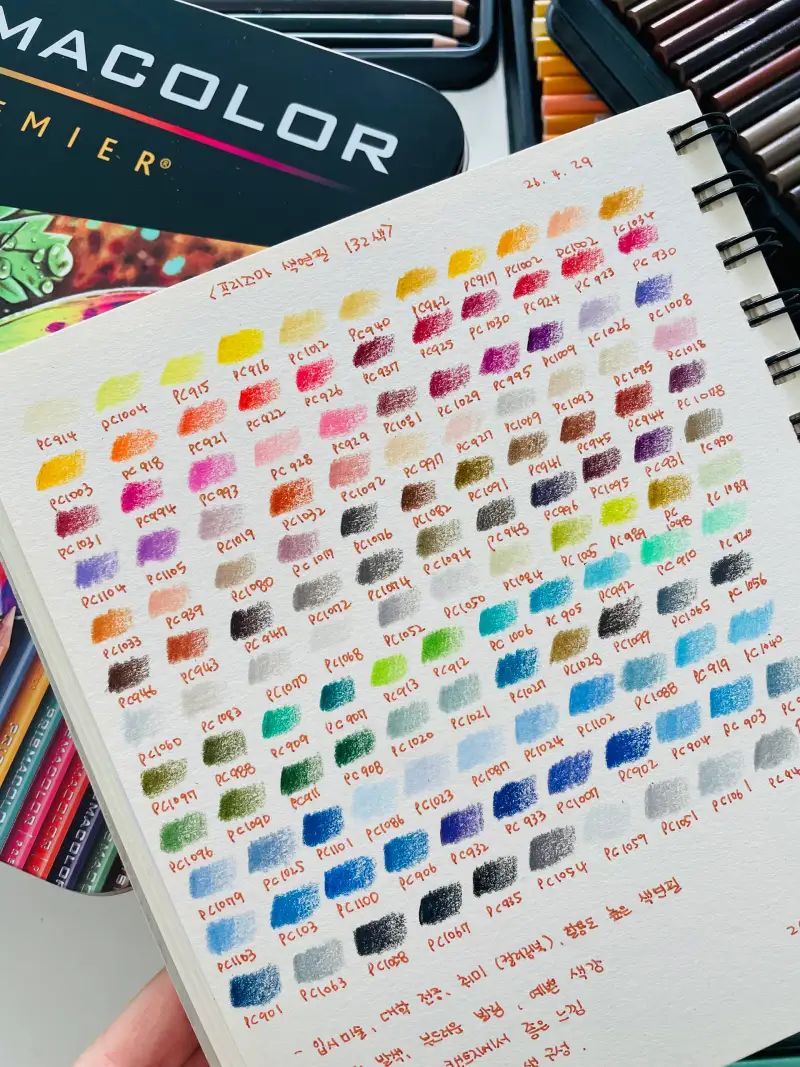 MACOLOR
EMIER®
26.4.29
<프리즈마 색연필 132색>
PC914 PC1004 PC915 PC916 PC1012 PC940 PC942 PC917 PC1002 PC1002 PC1034
PC1003 PC918 PC921 PC922 PC926 PC937 PC925 PC1030 PC924 PC923 PC930
PC1031 PC994 PC993 PC928 PC929 PC1081 PC1029 PC995 PC1009 PC1026 PC1008
PC1104 PC1105 PC1019 PC1032 PC1092 PC997 PC927 PC1009 PC1093 PC1085 PC1018
PC1033 PC939 PC1080 PC1017 PC1076 PC1082 PC1091 PC941 PC945 PC944 PC1078
PC946 PC943 PC947 PC1072 PC1074 PC1094 PC948 PC996 PC1095 PC931 PC950
PC1060 PC1083 PC1070 PC1068 PC1052 PC1050 PC1084 PC1005 PC989 PC1048 PC1089
PC1097 PC988 PC909 PC907 PC913 PC912 PC1006 PC905 PC992 PC910 PC920
PC1096 PC1090 PC911 PC908 PC1020 PC1021 PC1027 PC1028 PC1099 PC1065 PC1056
PC1079 PC1025 PC1101 PC1086 PC1023 PC1087 PC1024 PC1102 PC1088 PC919 PC1040
PC1103 PC103 PC1100 PC906 PC932 PC933 PC1007 PC902 PC904 PC903
PC901 PC1063 PC1058 PC1067 PC935 PC1054 PC1059 PC1051 PC1061 PC94
- 입시미술, 대학 전공, 취미 (컬러링북), 활용도 높은 색연필
부드러운 발림, 예쁜 색감
좋은 느낌
색 구성.
PRISMACOLOR
PRISMACOLOR